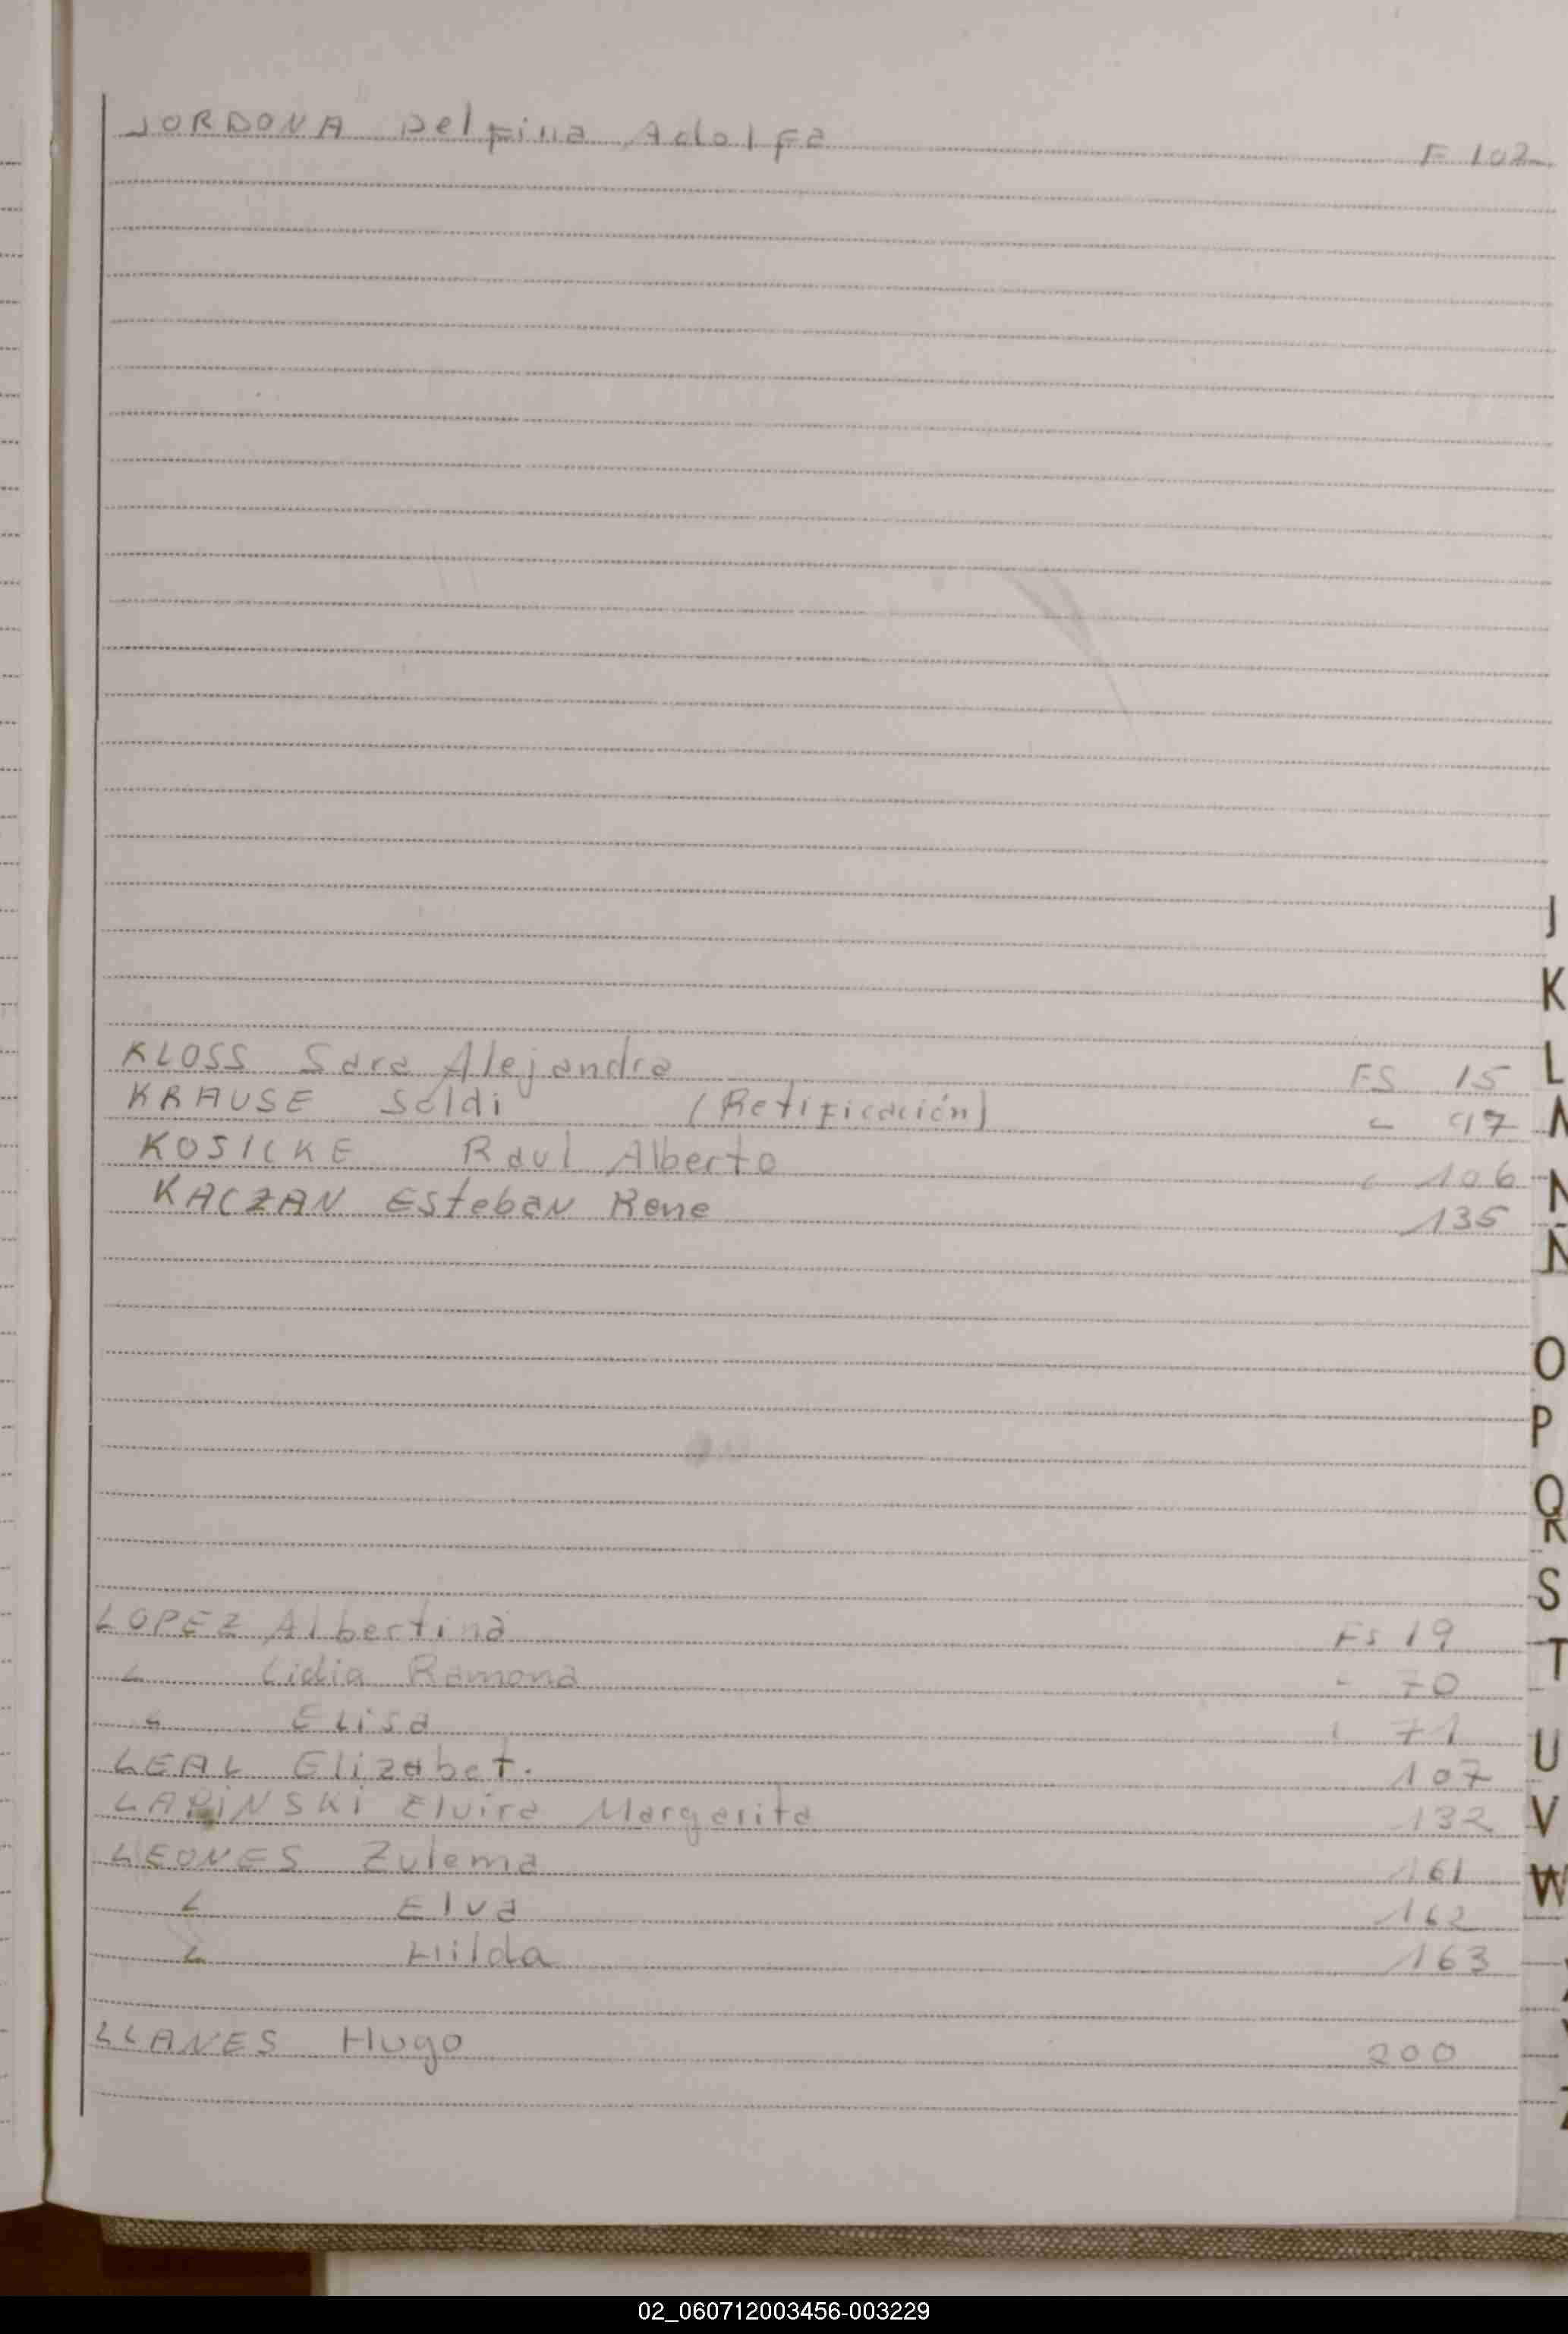 JORDONA Delfina Adolfa F 102
KLOSS Sara Alejandra FS 15
KRAUSE Soldi (Retificación) " 97
KOSICKE Raul Alberto " 106
KACZAN Esteban Rene 135
LOPEZ Albertina Fs 19
" Lidia Ramona " 70
" Elisa " 71
LEAL Elizabet. 107
LAPINSKI Elvira Margarita 132
LEONES Zulema 161
" Elva 162
" Hilda 163
LLANES Hugo 200
J
K
L
N
Ñ
O
P
Q
R
S
T
U
V
W
02_060712003456-003229